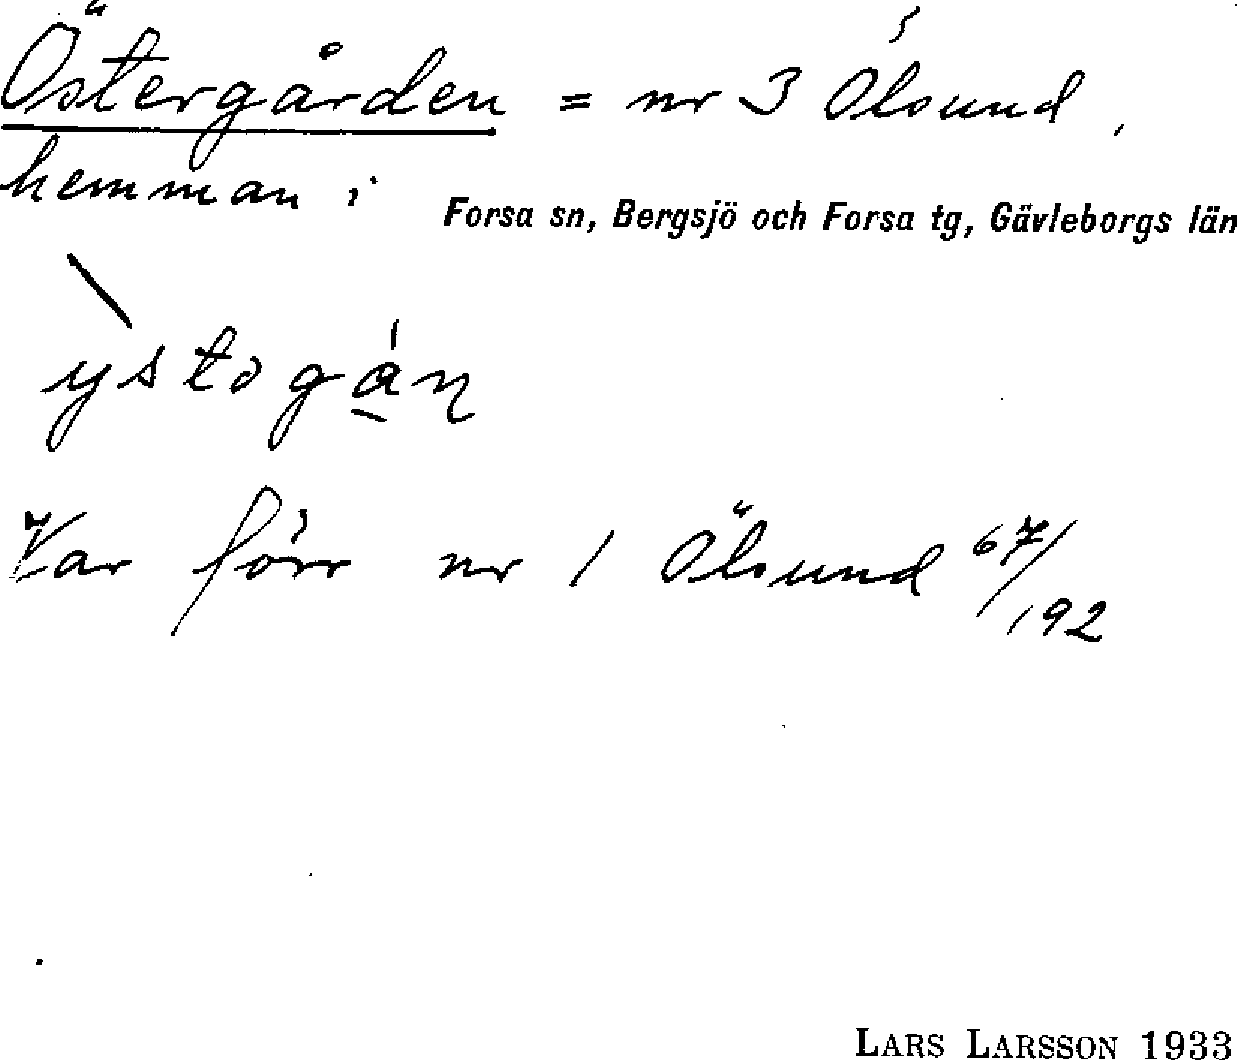 Östergården = nr 3 Ölsund,
hemman i Forsa sn, Bergsjö och Forsa tg, Gävleborgs län
Var förr nr 1 Ölsund 67/192
LARS LARSSON 1933